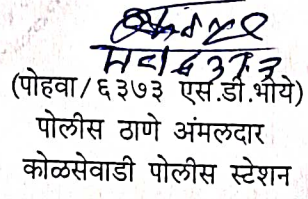 (पोहवा/६३७३ एस.डी.भोये)
पोलीस ठाणे अंमलदार
कोळसेवाडी पोलीस स्टेशन